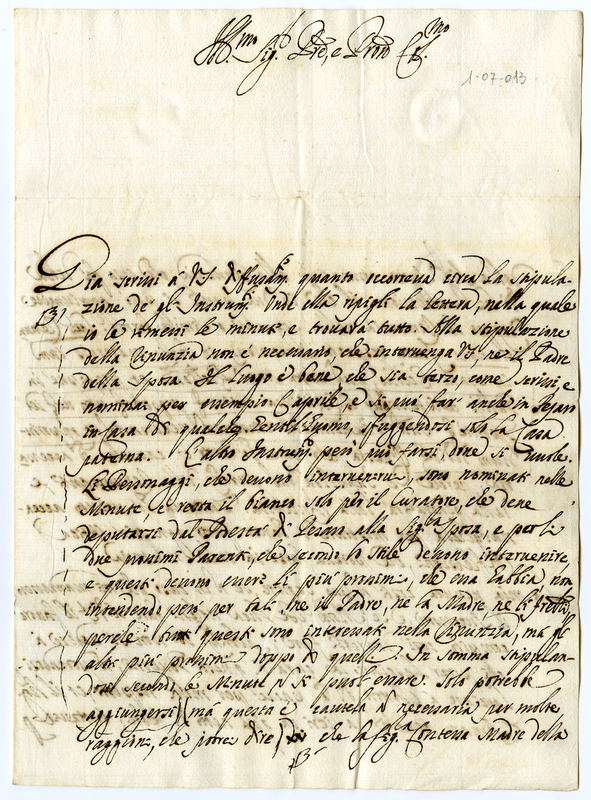 Ill.mo Sig.r Prõ, e Pron Col.mo
1-07-013
Già scrissi á VS. diffusam.e quanto occorreva circa la stipula-
zione de gli Instrum.ti onde ella ripigli la lettera, nella quale
io le trmessi le minute, e trovarà tutto. Alla stipulazione
della Renunzia non è necessario, che intervenga VS, ne il Padre
della Sposa. Il luogo è bene, che sia terzo, come scrissi, e
nominai per essempio Caprile, e si può far anche in Pesaro
in Casa di qualche Gentil'uomo, sfuggendosi solo la Casa
paterna. L'altro Instrum.to però può farsi dove si vuole.
Li Personaggi, che devono intervenirvi, sono nominati nelle
Minute, e resta il bianco solo per il Curatore, che deve
deputarsi dal Podestà di Pesaro alla Sig.ra Sposa, e per li
due prossimi Parenti, che secondo lo stile devono intervenire,
e questi devono essere li più prossimi, che essa habbia non
intendendo però per tali ne il Padre, ne la Madre, ne li fratelli,
perche tutti questi sono interessati nella Renunzia, má gli
altri più prossimi doppo di quelli. In somma stipulan-
dosi secondo le Minute ñ si può errare. Solo potrebbe
aggiungersi (má questa è cautela ñ necessaria per molte
raggioni, che potrei dire) che la Sig.ra Contessa Madre della